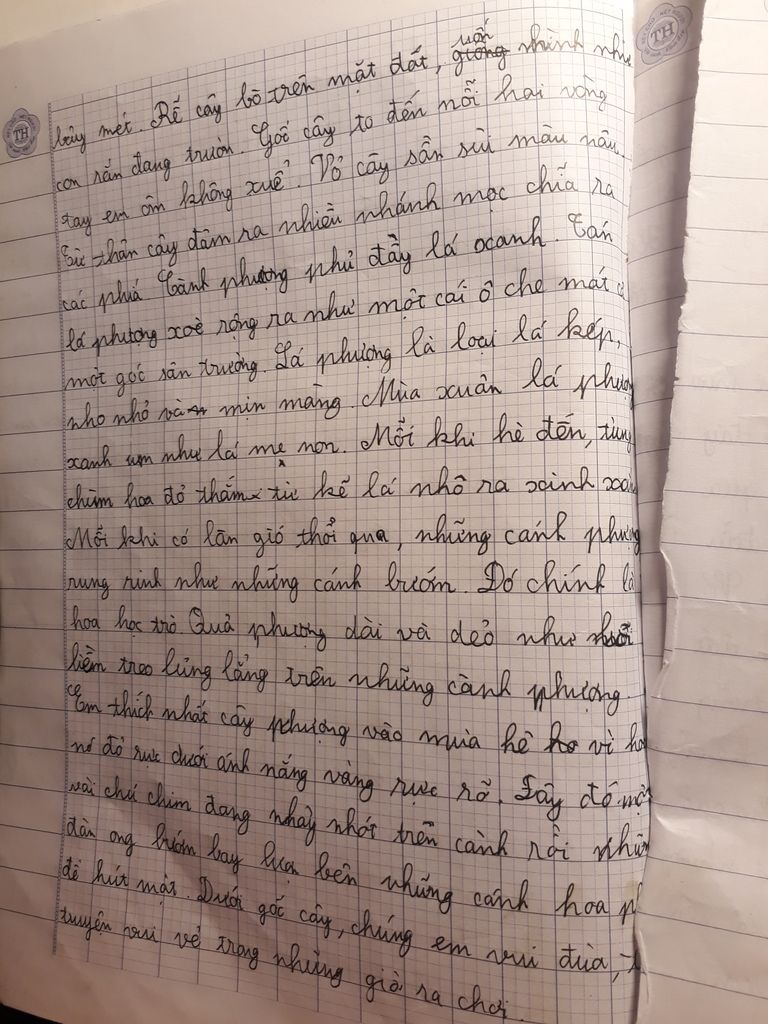 TH
TH
bảy mét. Rễ cây bò trên mặt đất, uốn giống nhình như
con rắn đang trườn. Gốc cây to đến nỗi hai vòng
tay em ôm không xuể. Vỏ cây sần sùi màu nâu.
Từ thân cây đâm ra nhiều nhánh mọc chĩa ra
các phía. Cành phượng phủ đầy lá xanh. Tán
lá phượng xoè rộng ra như một cái ô che mát cả
một góc sân trường. Lá phượng là loại lá kép,
nho nhỏ và mịn màng. Mùa xuân lá phượng
xanh um như lá me non. Mỗi khi hè đến, từng
chùm hoa đỏ thắm từ kẽ lá nhô ra xinh
Mỗi khi có làn gió thổi qua, những cánh phượng
rung rinh như những cánh bướm. Đó chính là
hoa học trò. Quả phượng dài và dẻo như
liềm treo lủng lẳng trên những cành phượng.
Em thích nhất cây phượng vào mùa hè vì hoa
nó đỏ rực dưới ánh nắng vàng rực rỡ. Đây đó một
vài chú chim đang nhảy nhót trên cành rồi những
đàn ong bướm bay lượn bên những cánh hoa ph
để hút mật. Dưới gốc cây, chúng em vui đùa,
truyện vui vẻ trong những giờ ra chơi.